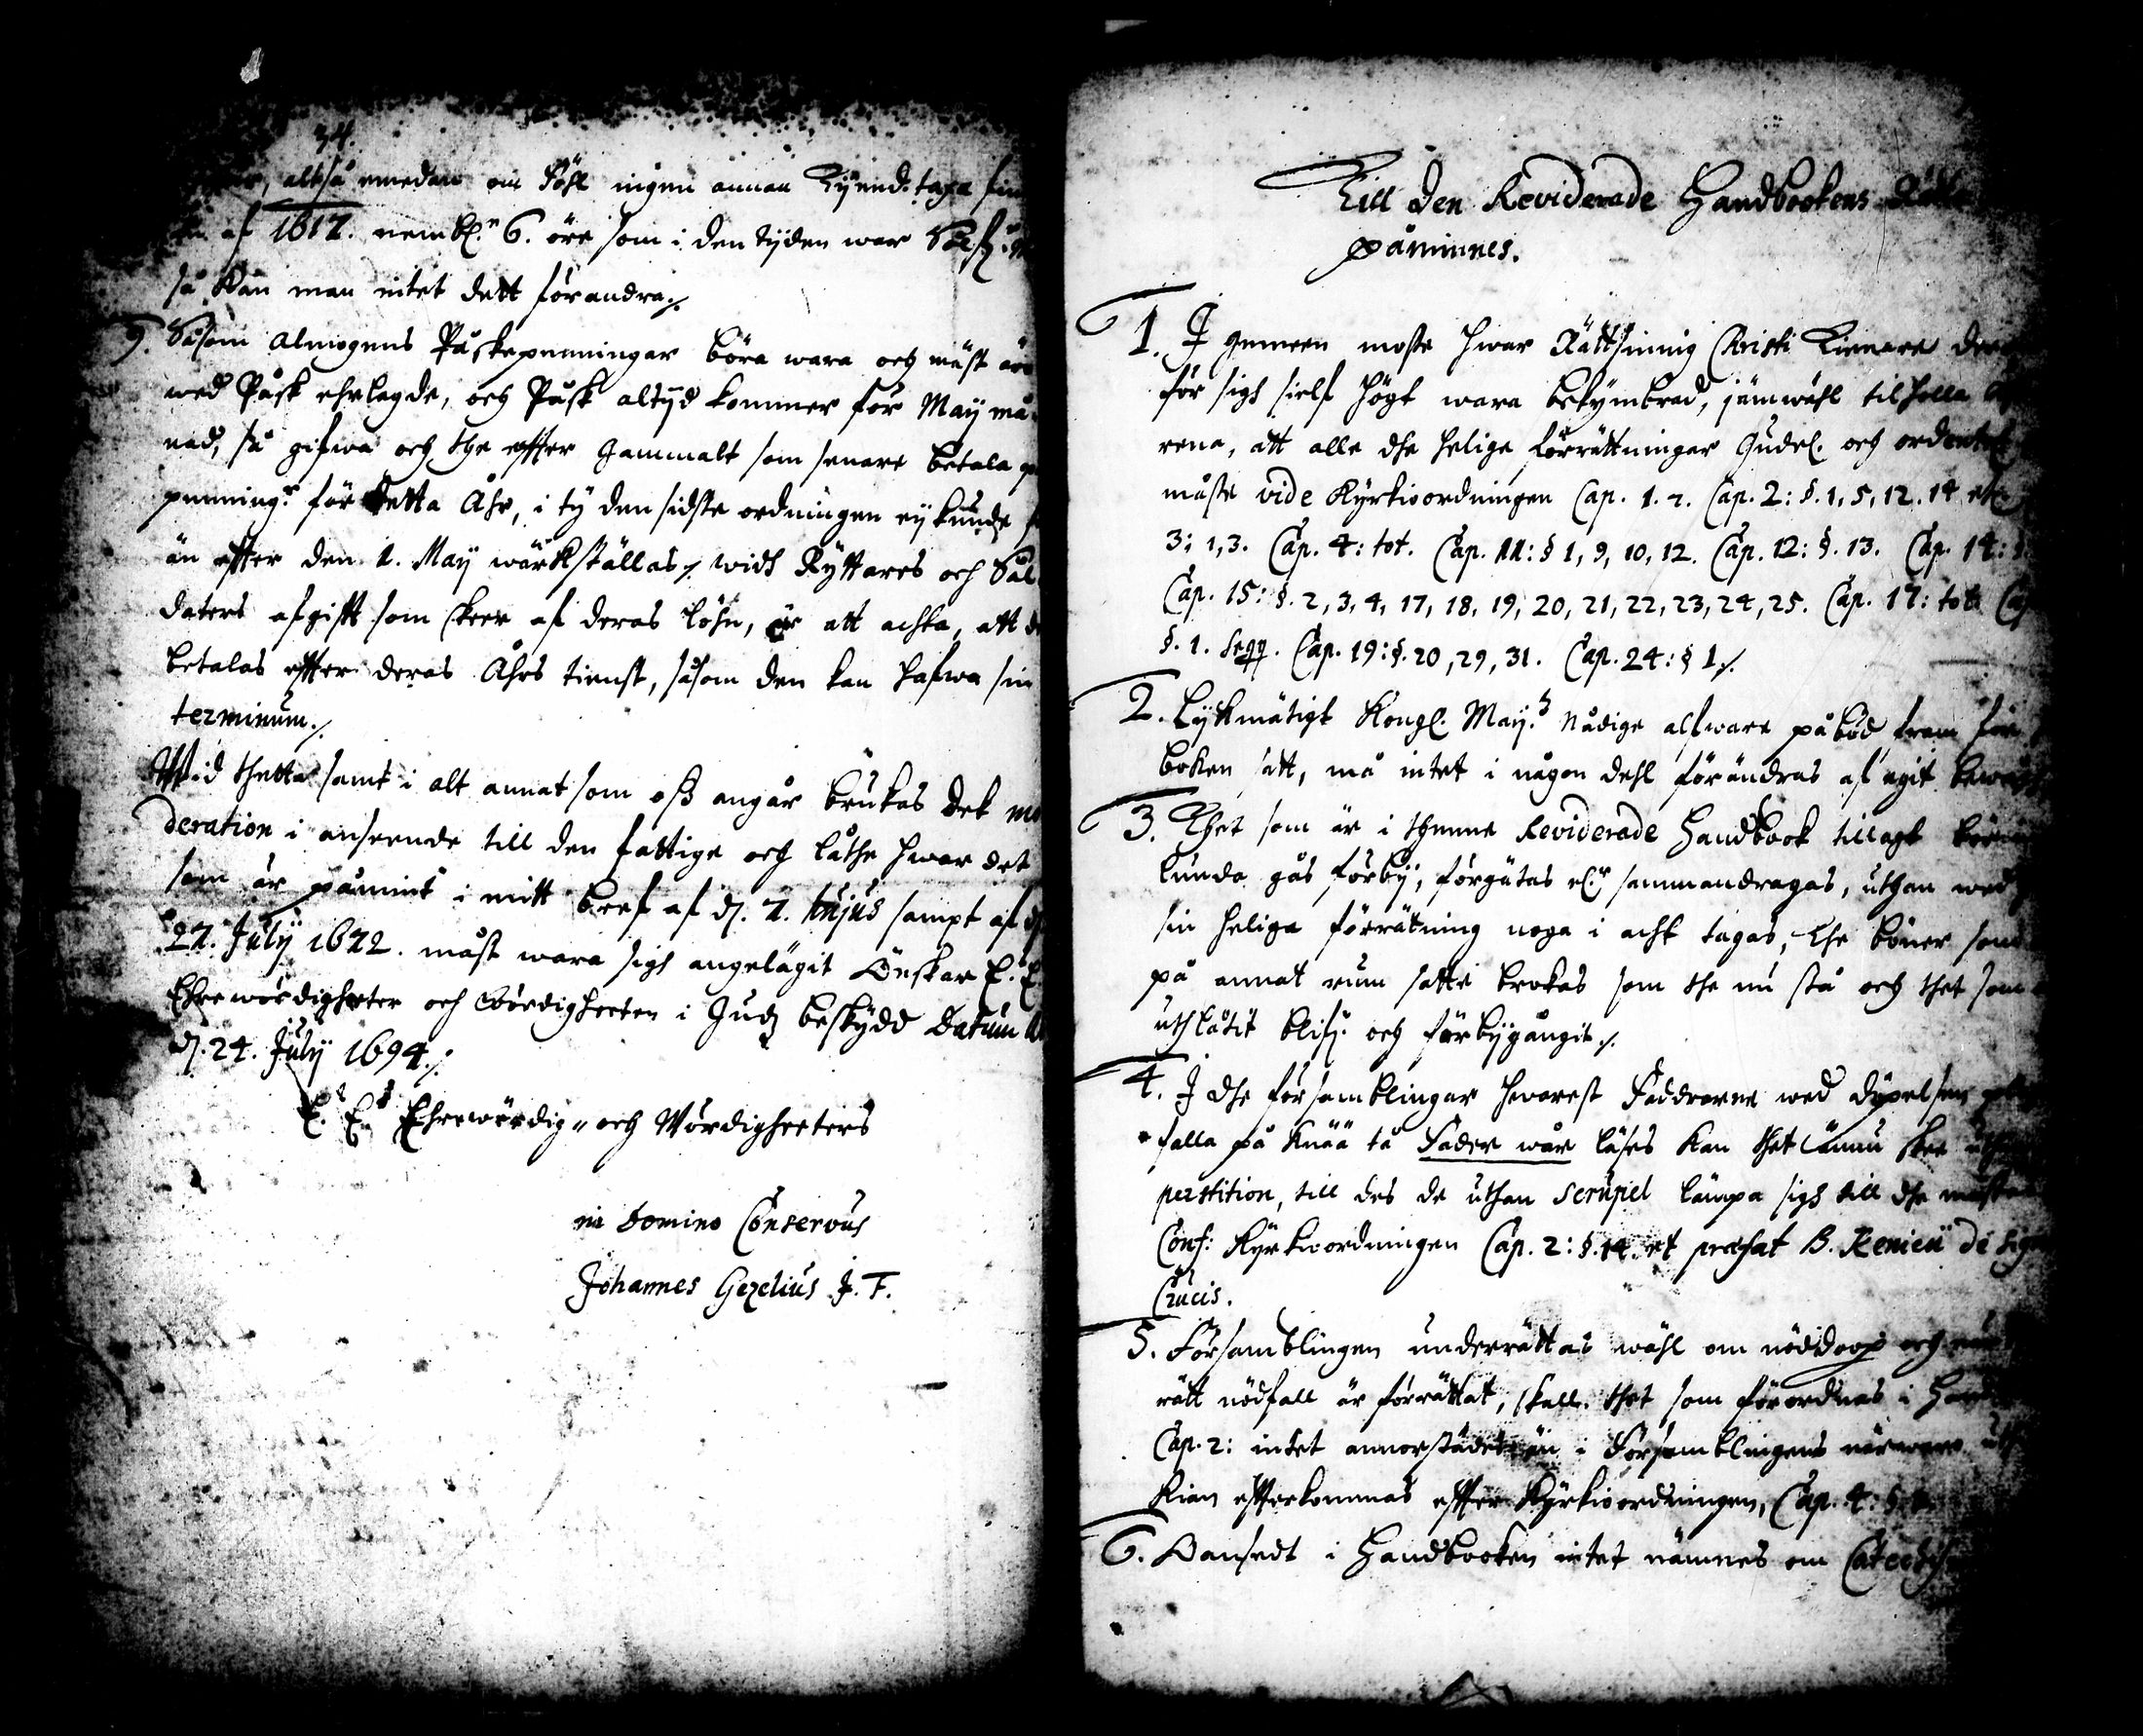 34.
altså emedan om Föhl ingen annan Tijend. taxa fin
af 1617. nembl.n 6. öre som i den tyden war
så kan man intet dett förandra./.
9. Såsom Almogens Påskepenningar böra wara och mäst äre
wed Påsk ehrlagde, och Påsk altijd kommer för May må-
nad, så gifwa och the effter gammalt som senare betala
penning.r för detta Åhr, i ty den sidste ordningen ey kunde
än effter den 1. Maij wärkställas./. widh Ryttares och Sol
daters afgifft som skeer af deras löhn, är att achta, att de
betalas effter deras Åhrs tienst, såsom den kan hafwa sin
terminum./.
Wid thetta samt i alt annat som oss angår brukas dek mo
deration i anseende till den fattige och låthe hwar det
som är påmint i mitt bref af d. 2. hujus sampt af d.
27. Julij 1672. måst wara sigh angelägit Önskar E. E.
Ehrewördigheeter och Wördigheeten i Gudz beskydd Datum
d. 24. Julij 1694./.
E. E.s Ehrewördig- och Wördigheeters
in Domino Conservus
Johannes Gezelius J. F.
Till den Reviderade Handbookens
påminnes.
1. I gemeen moste hwar Rättsinnig Christi Tienare der
för sigh sielf högt wara bekymbrad, jämwähl tilhålla
rena, att alle dhe helige förrättningar Gudel. och ordentel
måste vide Kyrkioordningen Cap. 1. 2. Cap. 2: §. 1, 5, 12. 14 etc
3: 1, 3. Cap. 4: tot. Cap. 11: § 1, 9, 10, 12. Cap. 12: §. 13. Cap. 14: §
Cap. 15: §. 2, 3, 4, 17, 18, 19, 20, 21, 22, 23, 24, 25. Cap. 17: tot. Cap
§. 1. seqq. Cap. 19: §. 20, 29, 31. Cap. 24: § 1./.
2. Lykmätigt Kongl. May.tz Nådige alfware påbod fram för
boken satt, må intet i någon dehl förändras af egit
3. Thet som är i thenne Reviderade Handbook tillagt
lunda gås förby, förgätas el.r sammandragas, uthan wed
sin heliga förrätning noga i acht tagas, the böner som
på annat rum satte brokas som the nu stå och thet som
uthlåtit blifr. och förbygångit./.
4. I dhe församblingar hwarest Faddrarne wed döpelsen
falla på Knää tå Fader wår läses kan thet ännu skee
perstition, till des de uthan scrupel lämpa sigh till dhe mäste
Conf: Kyrkioordningen Cap. 2: §. 14. et præfat B. Kenicii de sig
Crucis.
5. Församblingen underrättas wähl om nöddoop och
rätt nödfall är förrättat, skall thet som förordnas i
Cap. 2: intet annorstädes än i Församblingens närwaro
Kian effterkommas effter Kyrkioordningen, Cap. 4: §.
6. Oansedt i Handbooken intet nämnes om Catech